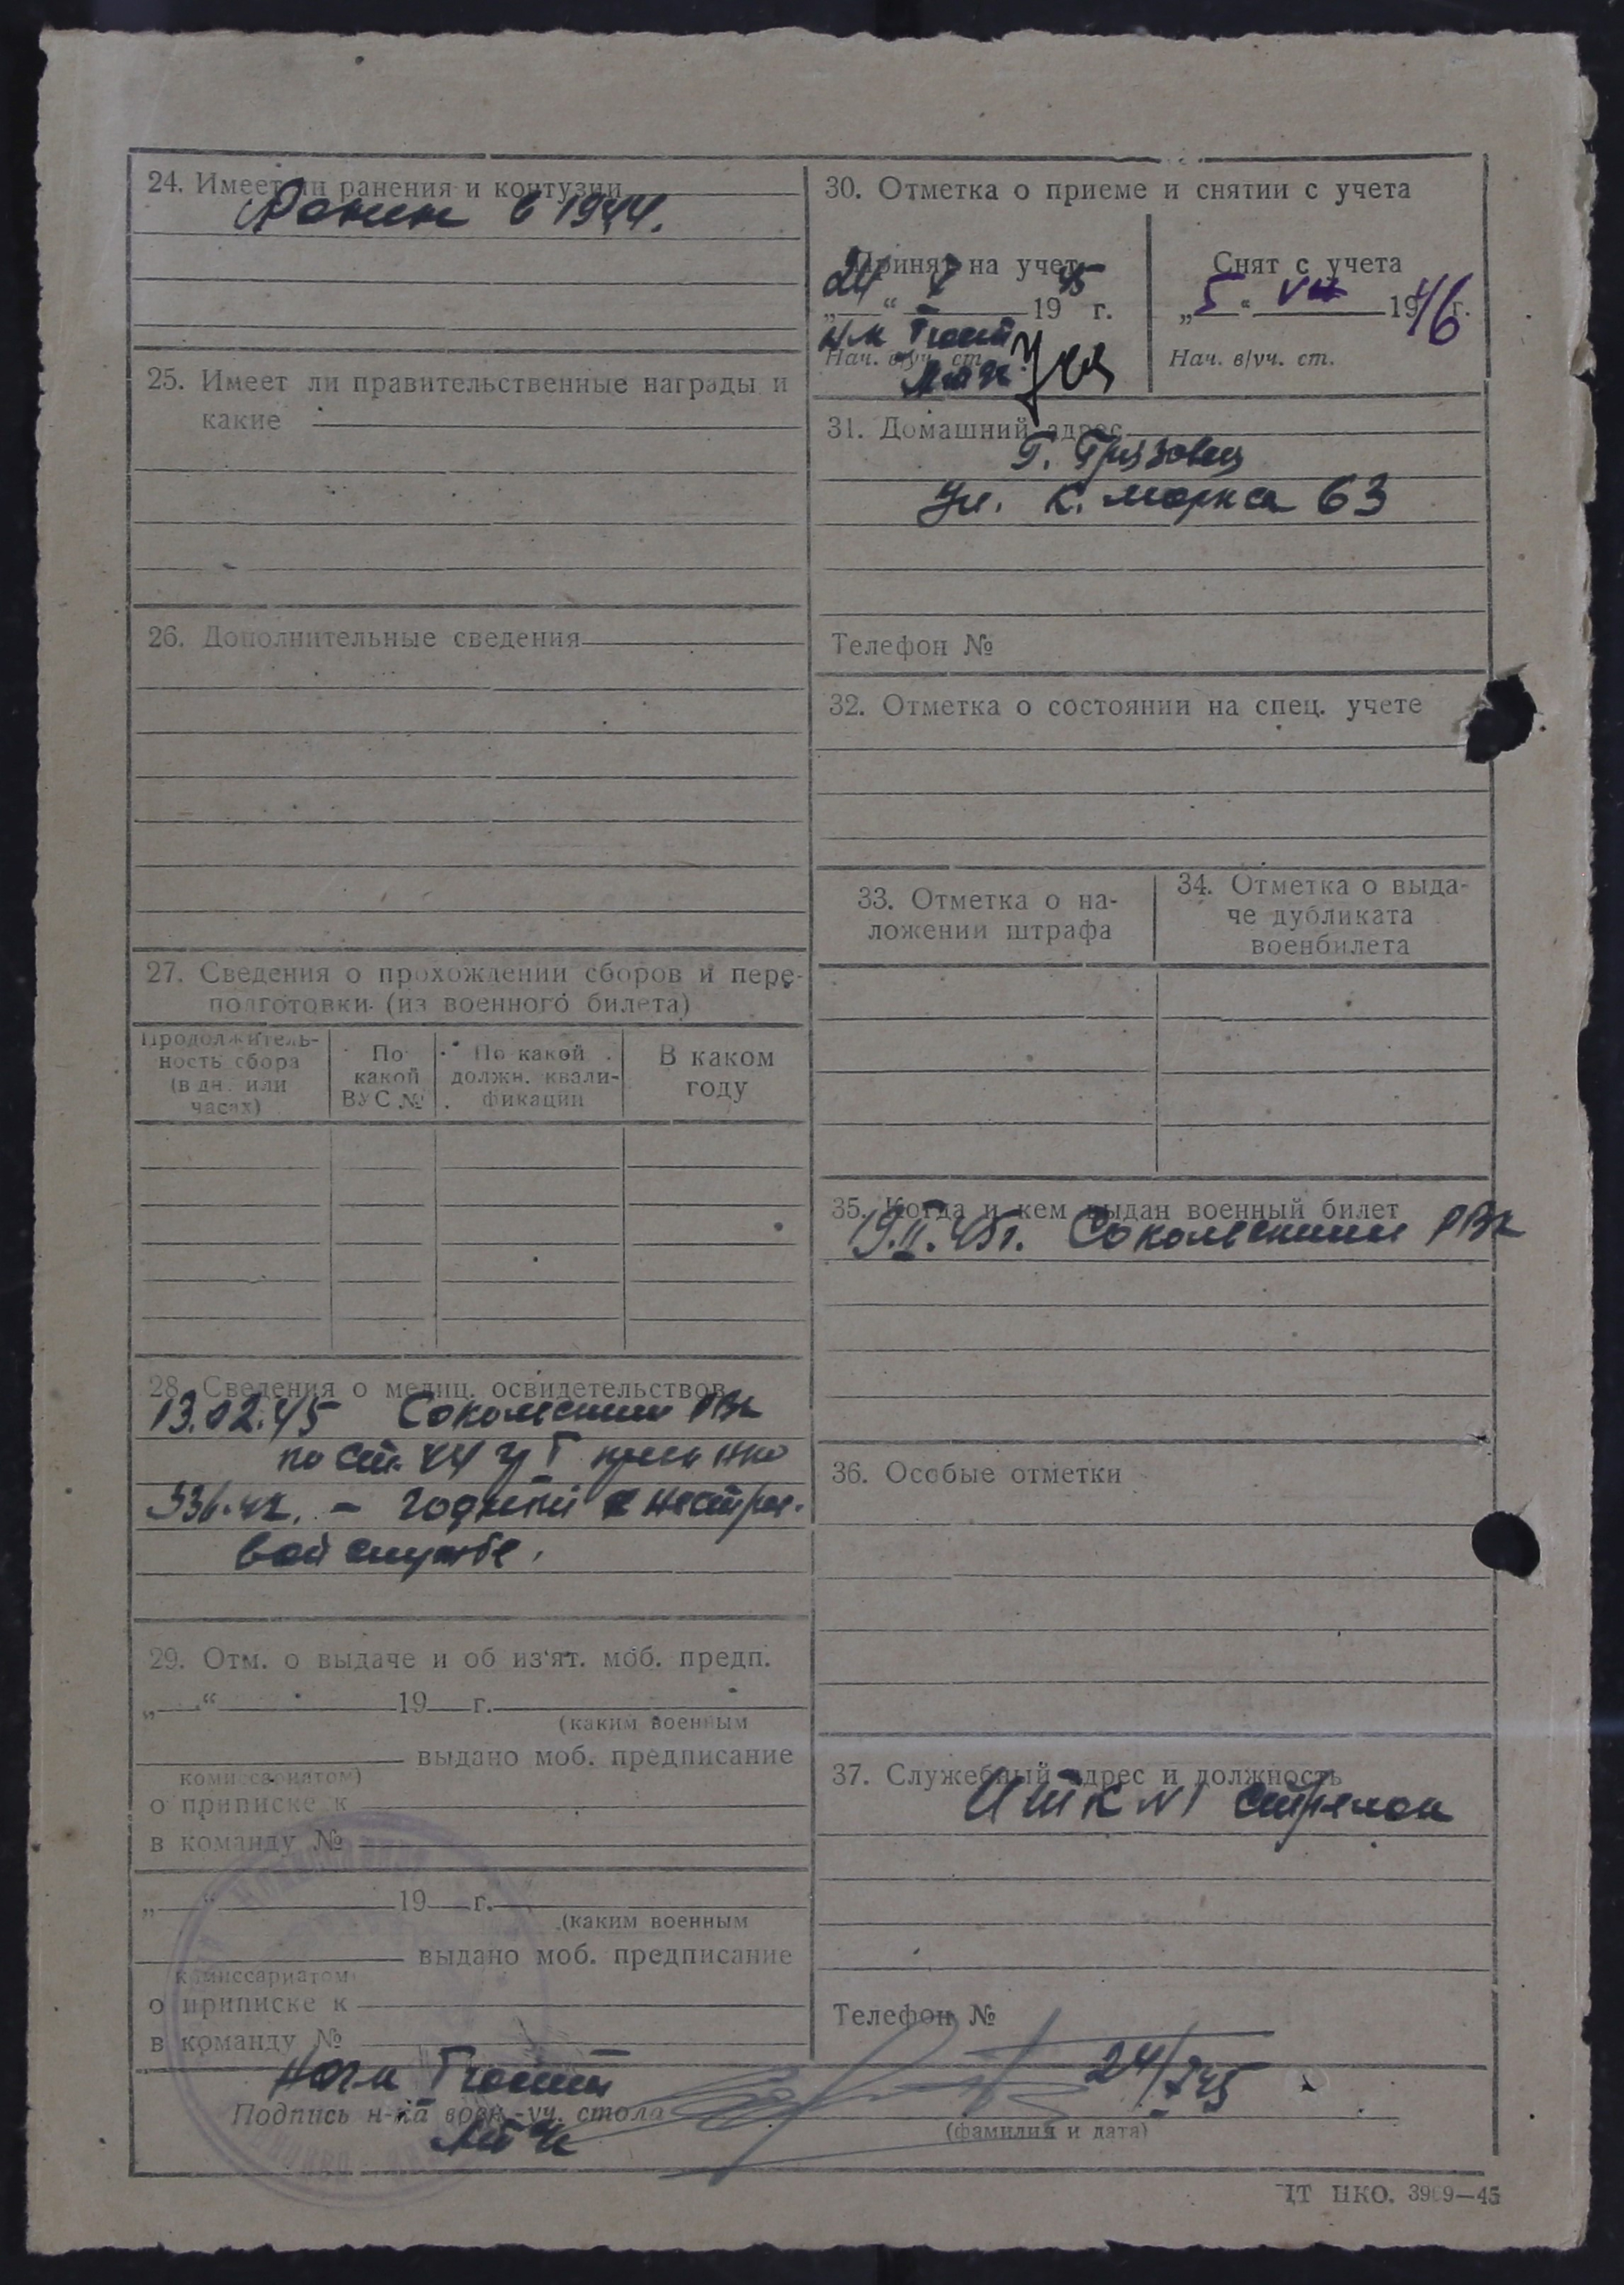 24. Имеет ли ранения и контузии
Ранен в 1944.
25. Имеет ли правительственные награды и
какие
26. Дополнительные сведения
27. Сведения о прохождении сборов и пере-
подготовки (из военного билета)
Продолжитель-
ность сбора
(в дн. или
часах)
По
какой
ВУС №
По какой
должн. квали-
фикации
В каком
году
28. Сведения о медиц. освидетельствов.
13.02.45 Сокольским РВК
по ст. гр I
336-42. – годный к нестрое-
вой службе.
29. Отм. о выдаче и об из'ят. моб. предп.
„ “ 19 г.
(каким военным
выдано моб. предписание
комиссариатом)
о приписке к
в команду №
„ “ 19 г.
(каким военным
выдано моб. предписание
комиссариатом)
о приписке к
в команду №
30. Отметка о приеме и снятии с учета
Принят на учет
„24“ 1945 г.
Нач. в/уч. ст.
Снят с учета
„5“ VII 1946 г.
Нач. в/уч. ст.
31. Домашний адрес
г. Грязовец
ул. К. Маркса 63
Телефон №
32. Отметка о состоянии на спец. учете
33. Отметка о на-
ложении штрафа
34. Отметка о выда-
че дубликата
военбилета
35. Когда и кем выдан военный билет
19.II.45г. Сокольским РВК
36. Особые отметки
37. Служебный адрес и должность
ИТК №1 стрелок
Телефон №
24/ 45
Подпись н-ка воен.-уч. стола
(фамилия и дата)
ЦТ НКО. 3969—45